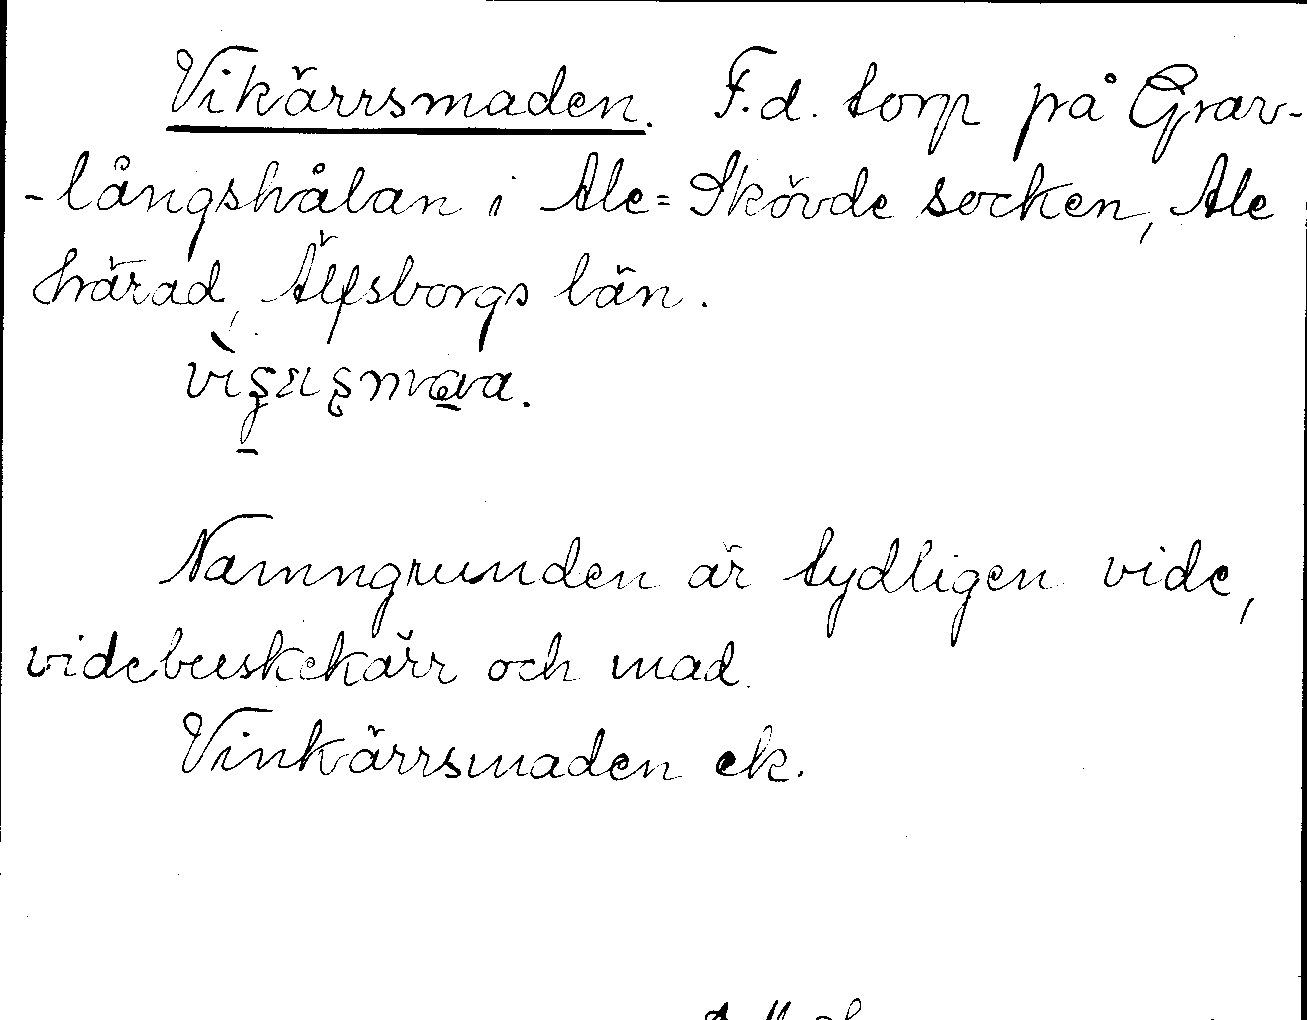 Vikärrsmaden. F.d. torp på Grav-
-långshålan i Ale=Skövde socken, Ale
härad, Älfsborgs län.
Namngrunden är tydligen vide,
videbuskekärr och mad.
Vinkärrsmaden ek.